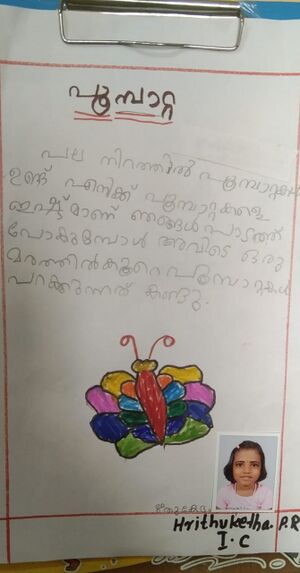 പൂമ്പാറ്റ
പല നിറത്തിൽ പൂമ്പാറ്റകൾ
ഉണ്ട് എനിക്ക് പൂമ്പാറ്റകളെ
ഇഷ്ടമാണ് ഞങ്ങൾ പാടത്ത്
പോകുമ്പോൾ അവിടെ ഒരു
മരത്തിൽ കുറെ പൂമ്പാറ്റകൾ
പറക്കുന്നത് കണ്ടു.
Hrithuketha. P.R
I. C